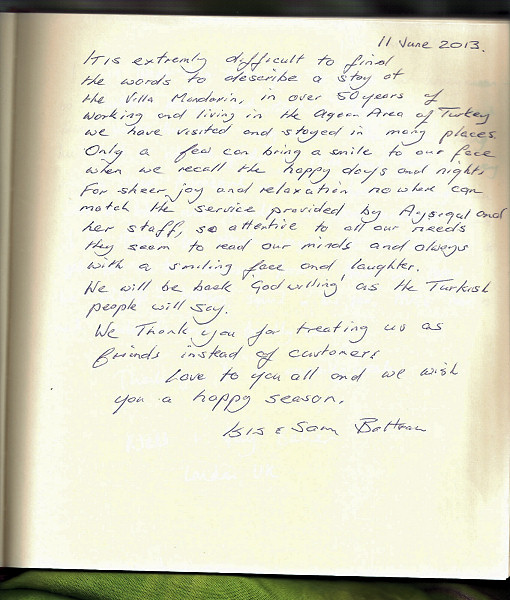 11 June 2013.
It is extremly difficult to find
the words to describe a stay at
the Villa Mandarin, in over 50 years of
working and living in the Agean Area of Turkey
we have visited and stayed in many places.
Only a few can bring a smile to our face
when we recall the happy days and nights
For sheer joy and relaxation nowhere can
match the service provided by Aysegul and
her staff, so attentive to all our needs
they seem to read our minds and always
with a smiling face and laughter.
We will be back 'God willing' as the Turkish
people will say.
We Thank you for treating us as
friends instead of customers
Love to you all and we wish
you a happy season.
& Sam
London UK